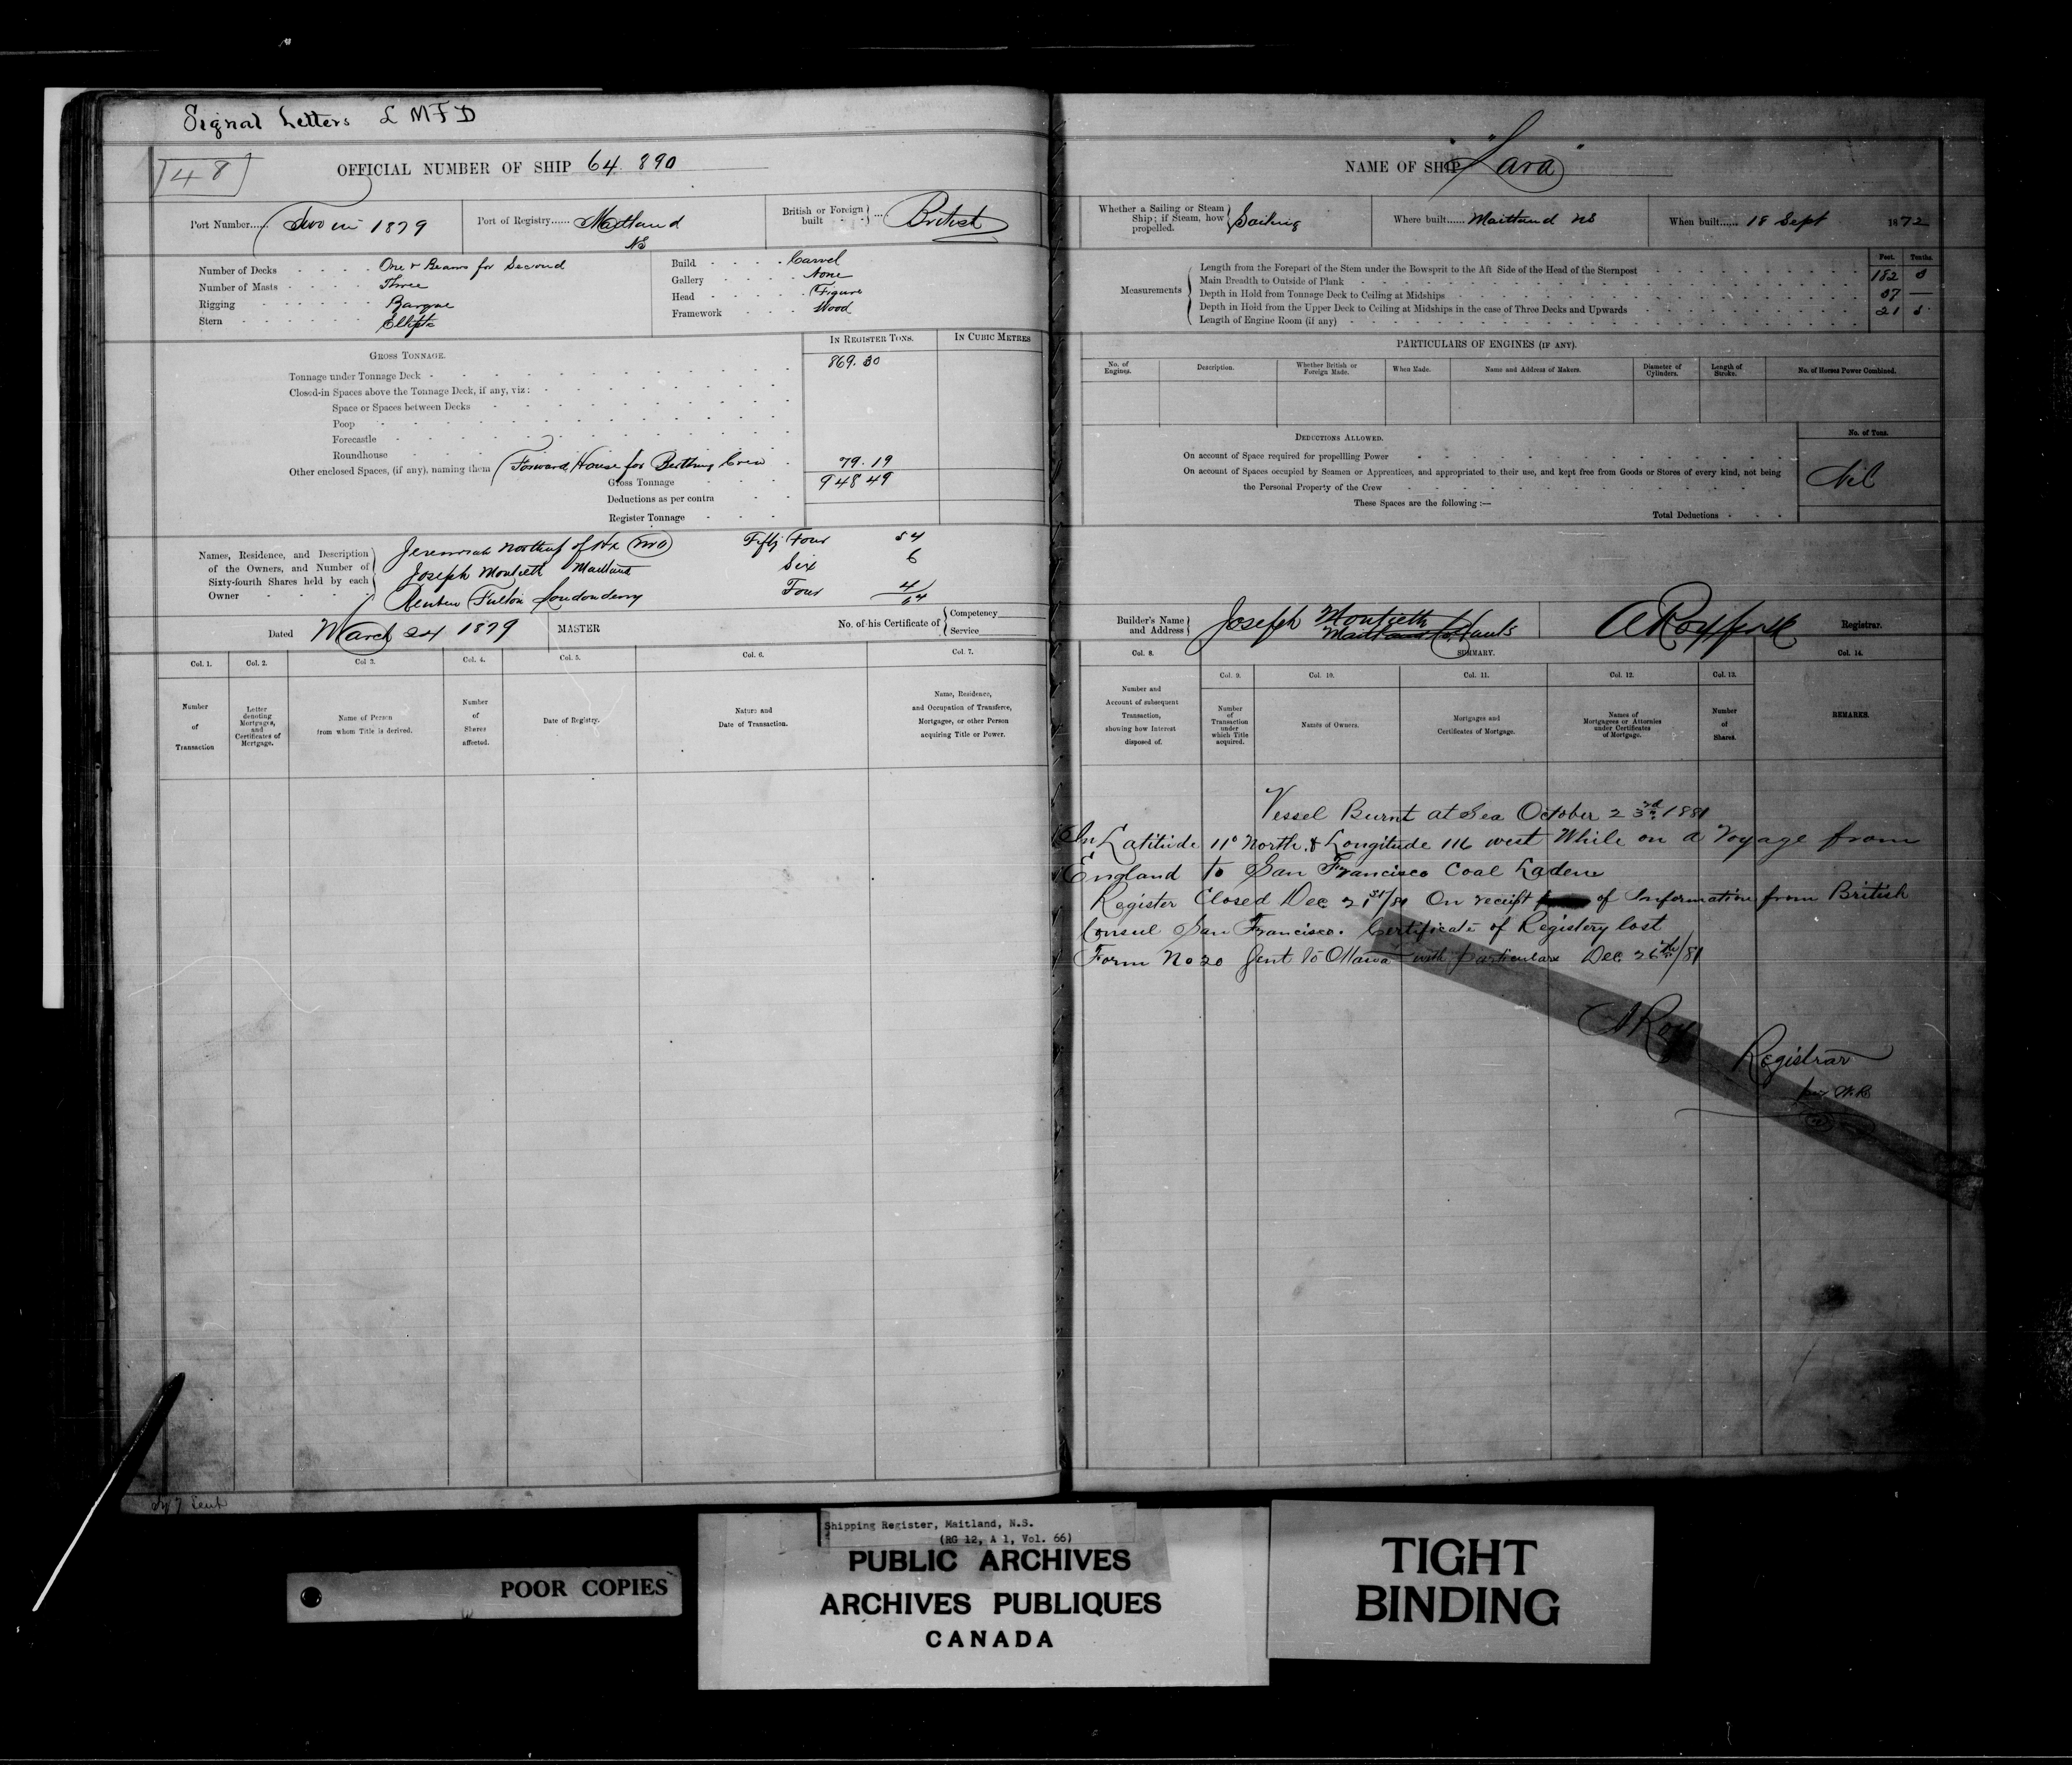 Signal Letters L M F D
48
OFFICIAL NUMBER OF SHIP 64.890
Port Number...... Two in 1879
Port of Registry...... Maitland NS
British or Foreign built ... British
Number of Decks One & Beams for Second
Number of Masts Three
Rigging Barque
Stern Elliptc
Build Carvel
Gallery None
Head Figure
Framework Wood
IN REGISTER TONS.
IN CUBIC METRES
GROSS TONNAGE.
Tonnage under Tonnage Deck 869.30
Closed-in Spaces above the Tonnage Deck, if any, viz:
Space or Spaces between Decks
Poop
Forecastle
Roundhouse
Other enclosed Spaces, (if any), naming them Forward House for Berthing Crew 79.19
Gross Tonnage 948 49
Deductions as per contra
Register Tonnage
Names, Residence, and Description of the Owners, and Number of Sixty-fourth Shares held by each Owner
Jeremiah Northup of Hx Fifty Four 54
Joseph Montieth Maitland Six 6
Reuben Fulton Londonderry Four 4
64
Dated March 24 1879
MASTER
No. of his Certificate of { Competency
Service
Col. 1.
Col. 2.
Col 3.
Col. 4.
Col. 5.
Col. 6.
Col. 7.
Number of Transaction
Letter denoting Mortgages, and Certificates of Mortgage.
Name of Person from whom Title is derived.
Number of Shares affected.
Date of Registry.
Nature and Date of Transaction.
Name, Residence, and Occupation of Transferee, Mortgagee, or other Person acquiring Title or Power.
NAME OF SHIP "Lara"
Whether a Sailing or Steam Ship; if Steam, how propelled. Sailing
Where built...... Maitland NS
When built...... 18 Sept 1872
Feet. Tenths.
Measurements
Length from the Forepart of the Stem under the Bowsprit to the Aft Side of the Head of the Sternpost 182
Main Breadth to Outside of Plank 37 —
Depth in Hold from Tonnage Deck to Ceiling at Midships 21
Depth in Hold from the Upper Deck to Ceiling at Midships in the case of Three Decks and Upwards
Length of Engine Room (if any)
PARTICULARS OF ENGINES (IF ANY).
No. of Engines.
Description.
Whether British or Foreign Made.
When Made.
Name and Address of Makers.
Diameter of Cylinders.
Length of Stroke.
No. of Horses Power Combined.
DEDUCTIONS ALLOWED.
No. of Tons.
On account of Space required for propellling Power
On account of Spaces occupied by Seamen or Apprentices, and appropriated to their use, and kept free from Goods or Stores of every kind, not being
the Personal Property of the Crew
Nil
These Spaces are the following :—
Total Deductions
Builder's Name and Address } Joseph Montieth
Maitland Co Hants
Registrar.
Col. 8.
SUMMARY.
Col. 14.
Col. 9.
Col. 10.
Col. 11.
Col. 12.
Col. 13.
Number and Account of subsequent Transaction, showing how Interest disposed of.
Number of Transaction under which Title acquired.
Names of Owners.
Mortgages and Certificates of Mortgage.
Names of Mortgagees or Attornies under Certificates of Mortgage.
Number of Shares.
REMARKS.
Vessel Burnt at Sea October 23rd 1881
In Latitude 11° North & Longitude 116 west While on a Voyage from
England to San Francisco Coal Laden
Register Closed Dec 21st/81 On receipt of Information from British
Consul San Francisco. Certificate of Registery lost
Form No 20 Sent to Ottawa with particulars Dec 26th/81
A Roy
Registrar
per W.R.
Shipping Register, Maitland, N.S.
(RG 12, A 1, Vol. 66)
PUBLIC ARCHIVES
ARCHIVES PUBLIQUES
CANADA
POOR COPIES
TIGHT
BINDING